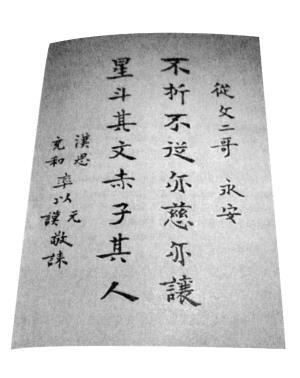 從文二哥 永安
不折不從亦慈亦讓
星斗其文赤子其人
漢思
充和 率以元
謨敬誄